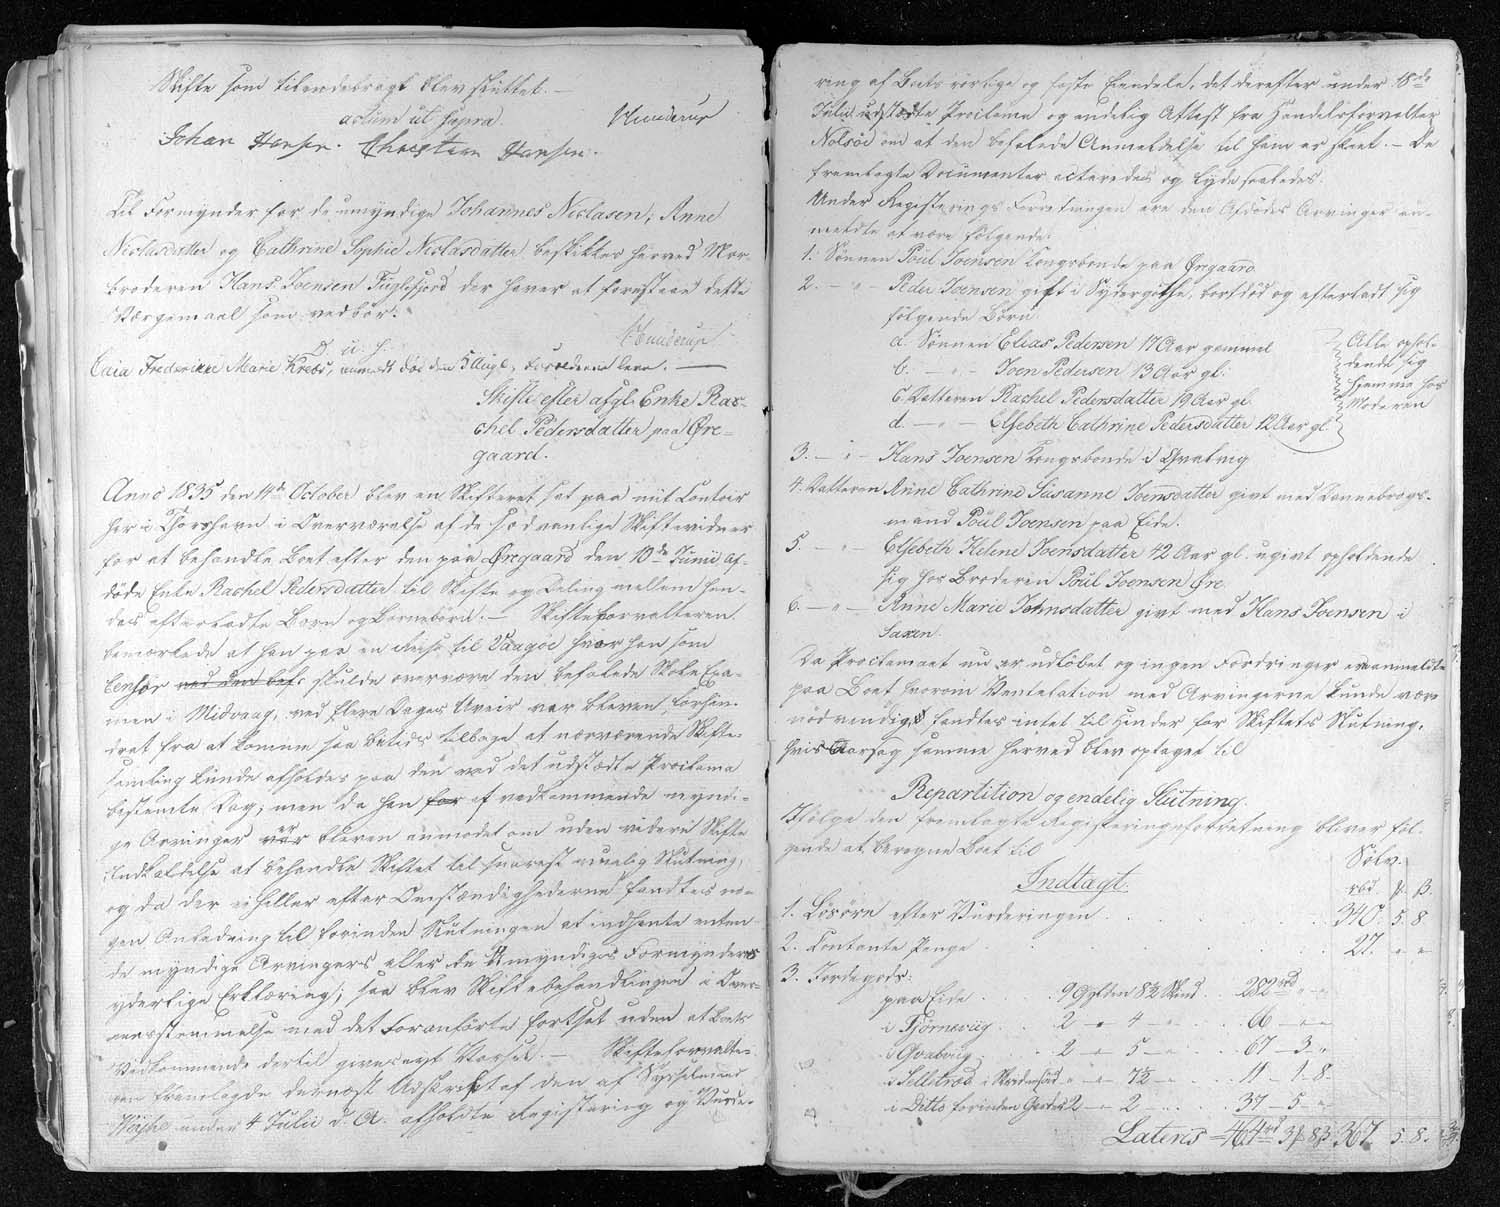 Skifte som tilendebragt blev sluttet. —
actum ut supra.
Hunderup
Johan Hansen. Christian Hansen.
Til Formynder for de umyndige Johannes Niclasen, Anne
Niclasdatter og Cathrine Sophie Niclasdatter beskikkes herved Mor-
broderen Hans Joensen Fuglefjord der haver at forestaae dette
Værgemaal som vedbør.
D. u. s.
Hunderup
Caia Frederikke Marie Krebs, anmeldt død den 5 Aug.,
Skifte efter afgl. Enke Ra-
chel Pedersdatter paa Øre-
gaard.
Anno 1835 den 14de October blev en Skifteret sat paa mit Contoir
her i Thorshavn i Overværelse af de sædvanlige Skiftevidner
for at behandle Boet efter den paa Øregaard den 10de Junii af-
døde Enke Rachel Pedersdatter til Skifte og Deling mellem hen-
des efterladte Børn og Børnebørn. — Skifteforvalteren
bemærkede at han paa en Reise til Vaagøe hvor han som
Censor ved den bef. skulde overvære den befalede Skole Exa-
men i Midvaag, ved flere Dages Uveir var bleven forhin-
dret fra at komme saa betids tilbage at nærværende Skifte-
samling kunde afholdes paa den ved det udstædte Proclama
bestemte Dag; men da han for af vedkommende myndi-
ge Arvinger var er bleven anmodet om uden videre Skifte
Indkaldelse at behandle Skiftet til snarest muelig Slutning,
og da der ei heller efter Omstændighederne fandtes no-
gen Anledning til forinden Slutningen at indhente enten
de myndige Arvingers eller de Umyndiges Formynderes
yderlige Erklæring; saa blev Skiftebehandlingen i Over-
eensstemmelse med det Foranførte fortsat uden at Boets
Vedkommende dertil gives nyt Varsel. — Skifteforvalte-
ren fremlagde dernæst Udskrift af den af Sysselmand
under 4 Julii d. A. afholdte Registering og Vurde-
ring af Boets rørlige og faste Eiendele, det derefter under 18de
Julii udstædte Proclama og endelig Attest fra Handelsforvalter
Nolsøe om at den befalede Anmeldelse til ham er skeet. — De
fremlagte Documenter acteredes og lyde saaledes.
Under Registerings Forretningen ere den Afdødes Arvinger an-
meldte at være følgende:
1. Sønnen Poul Joensen Kongsbonde paa Øregaard
2. — " — Peder Joensen gift i Sydergøthe, bortdød og efterladt sig
følgende Børn
a. Sønnen Elias Pedersen 17 Aar gammel
b. — " — Joen Pedersen 13 Aar gl.
c. Datteren Rachel Pedersdatter 19 Aar gl.
d. — " — Elsebeth Cathrine Pedersdatter 12 Aar gl.
Alle ophol-
dende sig
hjemme hos
Moderen
3. — " — Hans Joensen Kongsbonde i Qvalvig
4. Datteren Anne Cathrine Susanne Joensdatter givt med Dannebrogs-
mand Poul Joensen paa Eide.
5. — " — Elsebeth Helene Joensdatter 42 Aar gl. ugivt opholdende
sig hos Broderen Poul Joensen Øre.
6. — " — Anne Marie Johnsdatter givt med Hans Joensen i
Saxen.
Da Proclamaet nu er udløbet og ingen Fordringer ere anmeldte
paa Boet hvorom Ventelation med Arvingerne kunde være
nødvendig, fandtes intet til Hinder for Skiftets Slutning,
hvis Aarsag samme herved blev optaget til
Repartition og endelig Slutning.
Ifølge den fremlagte Registeringsforretning bliver føl-
gende at beregne Boet til
Sølv.
Indtægt.
rbd. ℳ. ß.
1. Løsøre efter Vurderingen . . . 340. 5. 8
2. Contante Penge . . . 27. " "
3. Jordegods:
paa Eide . . 9 Gylden 8½ Skind . . 282 rbd " "
i Tjørnevig . . 2 " 4 — " . . 66 — " "
i Qvalvig . . 2 " 5 — " . . 67 — 3 "
" " 7½ — " . . 11 — 1 — 8
i Ditto forinden Gjerdet 2 " 2 . . 37 — 5 "
Lateris 464 rbd 3 ℳ 8 ß 367 5. 8.